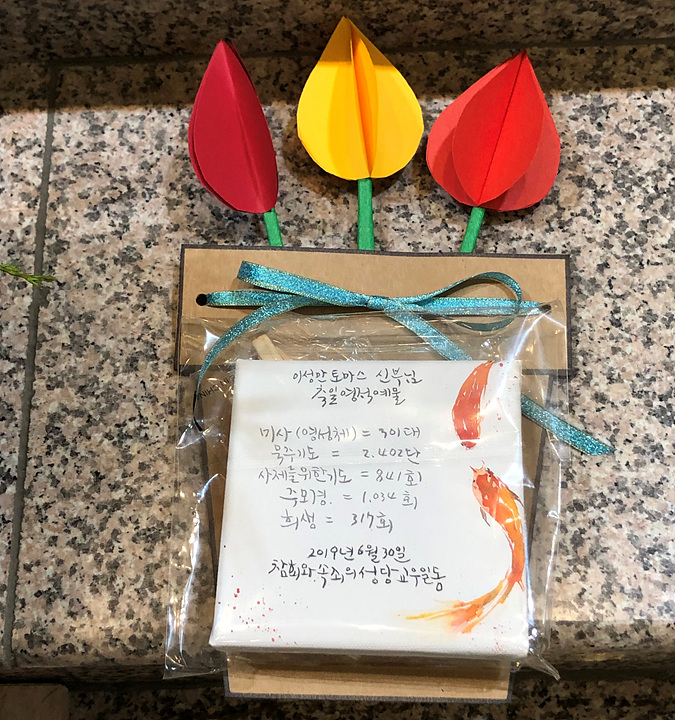 이성만 토마스 신부님
축일 영적예물
미사(영성체) = 301대
묵주기도 = 2.402단
사제를위한기도 = 841회
주모경. = 1.034회
희생 = 317회
2019년 6월 30일
참회와 속죄의 성당 교우일동